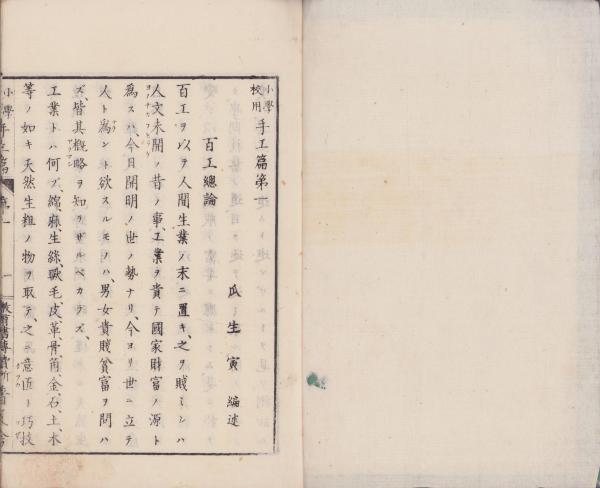 小學校用 手工篇第
瓜生寅 編述
百工總論
百工ヲ以テ人間生業ノ末ニ置キ、之ヲ賤ミシハ
人文未開ノ昔ノ事、工業ヲ貴テ國家財富ノ源ト
爲スハ、今日開明ノ世ノ勢ナリ、今ヨリ世ニ立テ
人ト爲ント欲スルモノハ、男女貴賤貧富ヲ問ハ
ズ、皆其概略ヲ知ラザルベカラズ、
工業トハ何ゾ、綿、麻、生絲、獸毛、皮、革、骨、角、金、石、土、木
等ノ如キ天然生粗ノ物ヲ取テ、之ニ意匠ト巧技
小學手工篇 第一 一